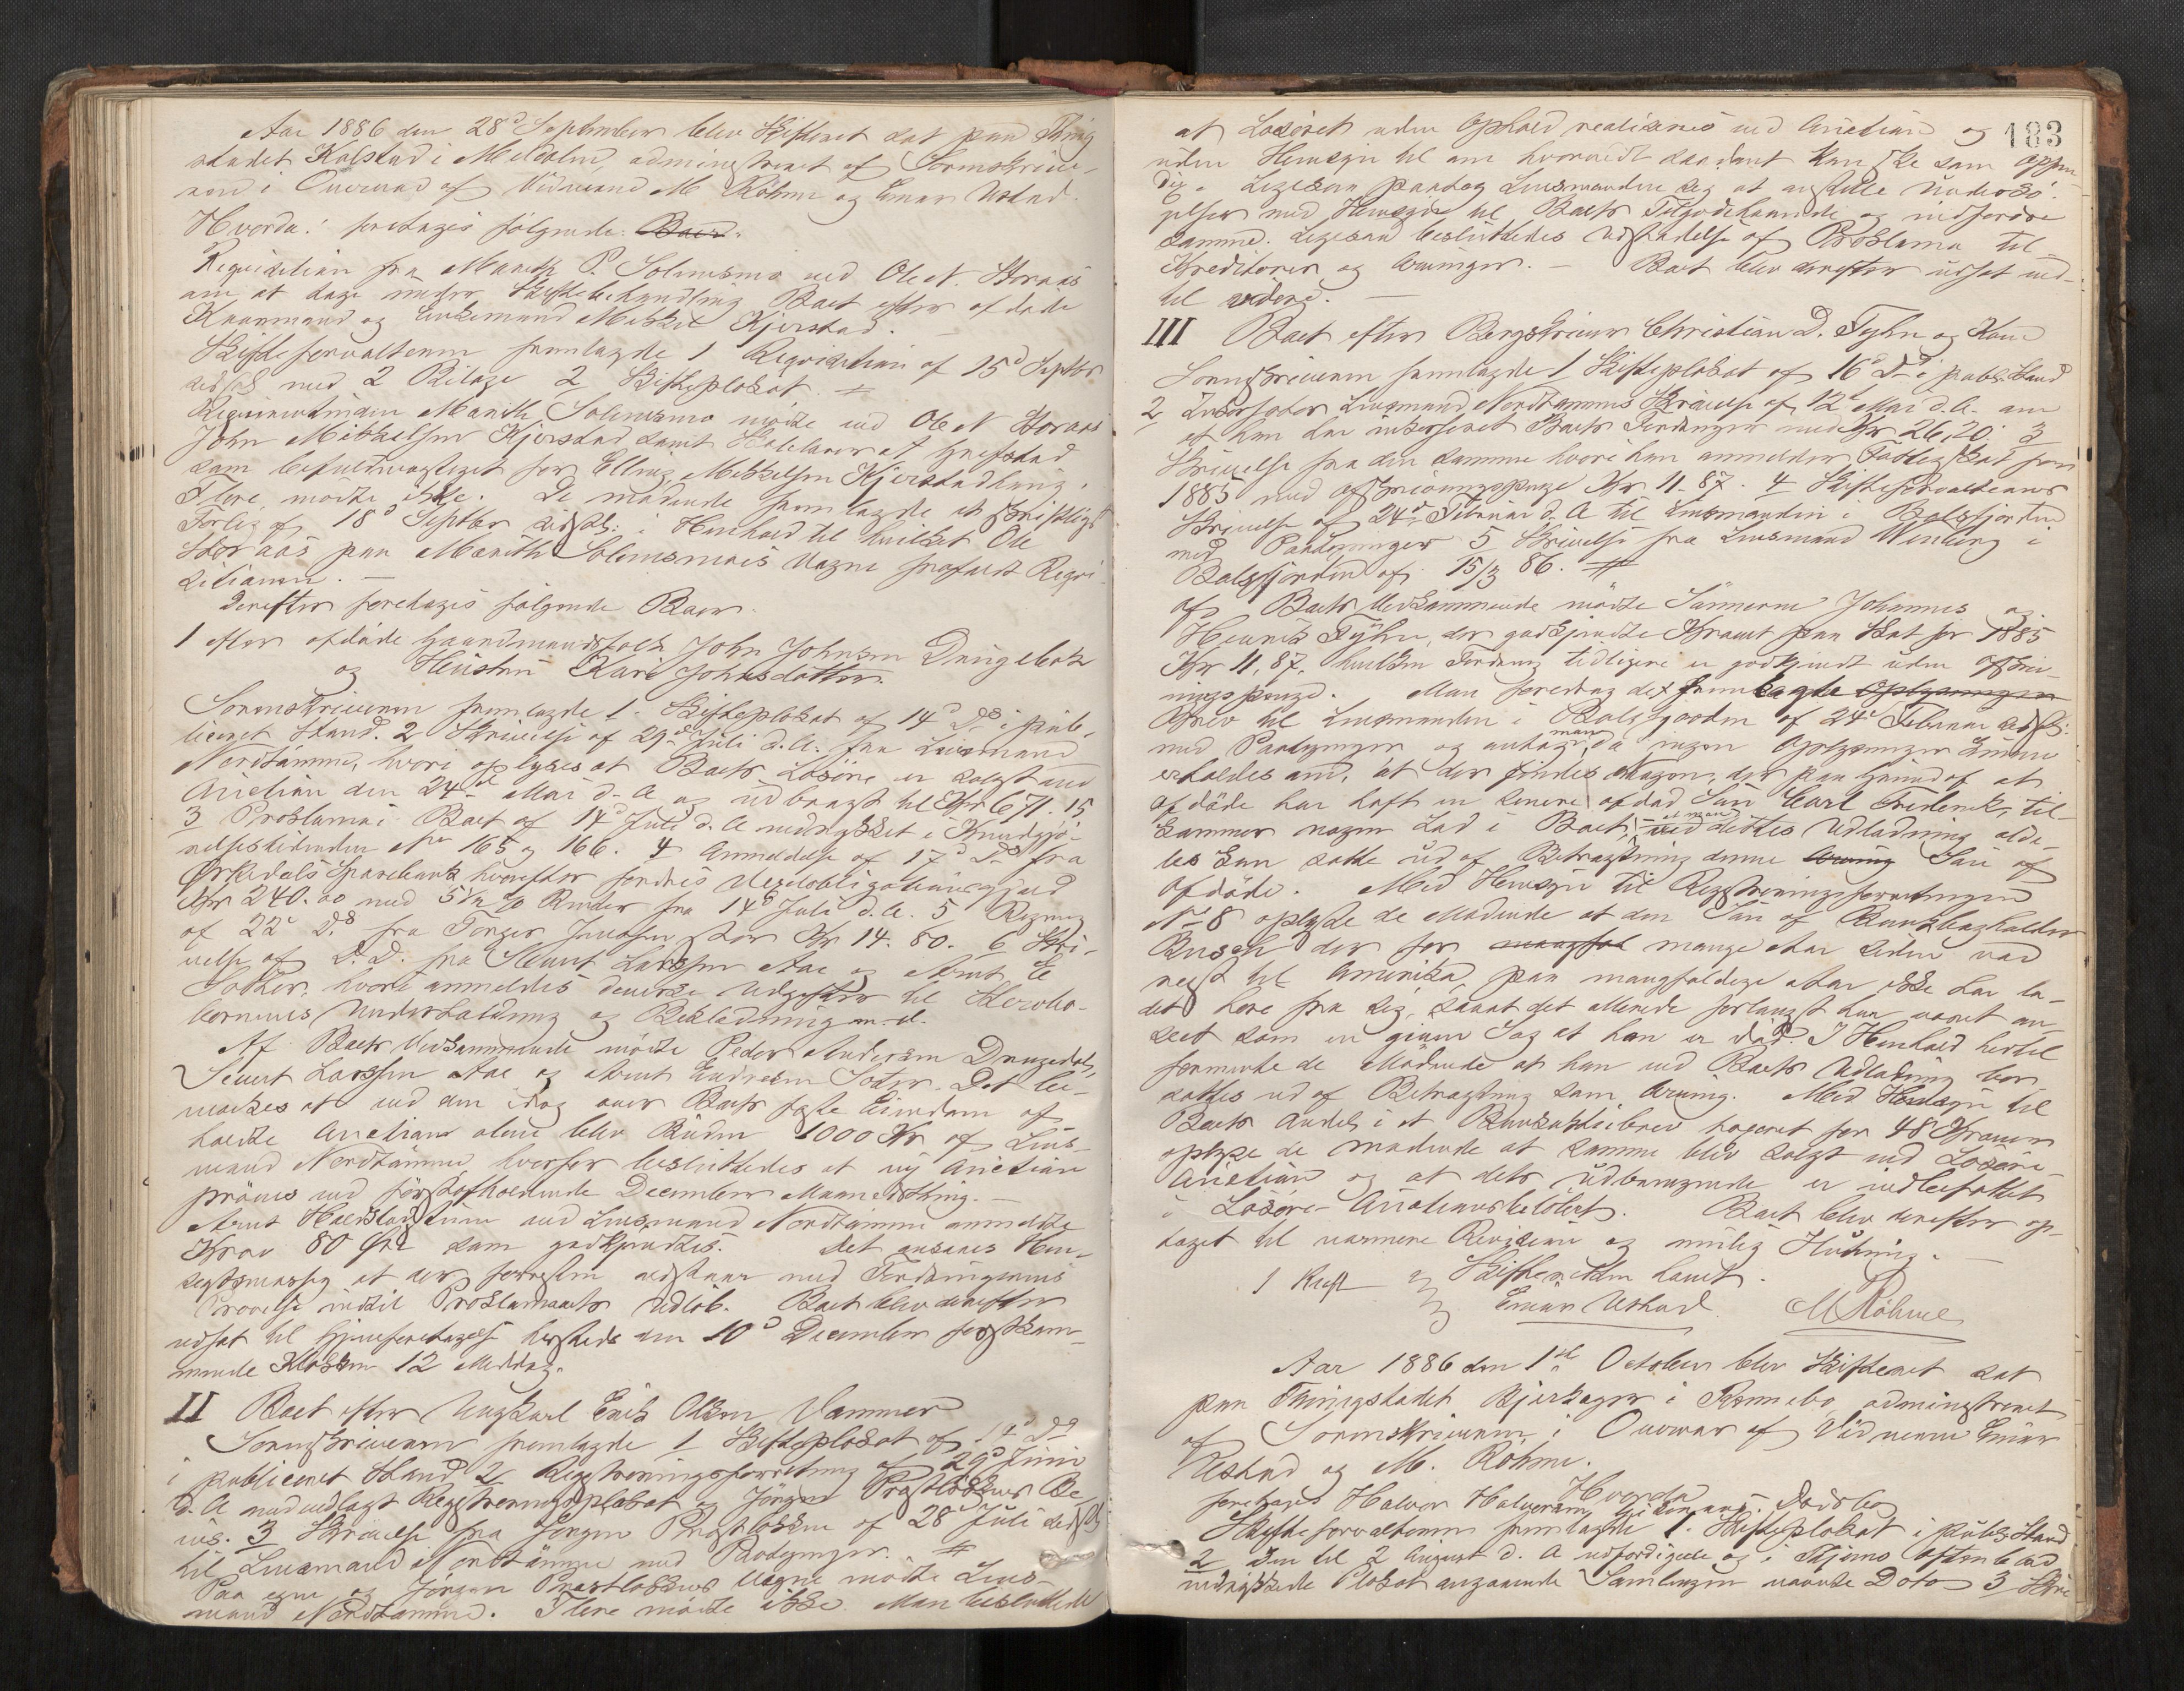 Aar 1886 den 28d September blev Skifteret sat paa Thing
stedet Kalstad i Meldalen, administreret af Sorenskrive-
ren i Overvær af Vidnerne M Röhme og Einar Ustad.
Hvorda: foretoges følgende: Boer.
Requisition fra Marith P. Solemsmo ved Ole N. Storaas
om at tage under Skiftebehandling Boet efter afdøde
Kaarmand og Enkemand Mikkel Kjerstad.
Skifteforvalteren fremlagde 1 Requisition af 15d Septbr
sidstl. med 2 Bilage 2 Skifteplakat.
Requirentinden Marith Solemsmo mødte ved Ole N Storaas
John Mikkelsen Kjerstad samt
som befuldmægtiget for Elling Mikkelsen Kjerstadhaug.
Flere mødte ikke. De mødende fremlagde et skriftligt
Forlig af 18d Septbr sidstl: i Henhold til hvilket Ole
Storaas paa Marith Solemsmoes Vegne frafaldt Requi-
sitionen. —
Derefter foretoges følgende Boer.
1 efter afdøde Gaardmandsfolk John Johnsen Drugebak
og Hustru Kari Johnsdatter.
Sorenskriveren fremlagde 1. Skifteplakat af 14d Ds i pub-
liceret Stand. 2 Skrivelse af 29de Juli d.A. fra Lensmand
Nordtømme, hvori oplyses at Boets Løsøre er solgt ved
Auction den 24de Mai d. A og udbragt til Kr 671. 15
3 Proklama i Boet af 14d Juli d. A indrykket i Kundgjø-
relsestidenden No 165 og 166. 4 Anmeldelse af 17d Ds fra
Ørkedals Sparebank hvorefter fordres Vexelobligationsgjæld
Kr 240.00 med 5½ % Renter fra 14d Juli d. A. 5 Regning
af 22d Ds fra Torger stor Kr 14. 80. 6 Skri-
velse af D. D. fra Sivert Larssen Aae og Arnt E
Sother: hvori anmeldes deres Udgifter til
børnenes Underholdning og Beklædning m. d.
Af Boets Vedkommende mødte Peder Andersen Drugedal,
Sivert Larssen Aae og Arnt Endresen Soter. Det be-
mærkes at ved den idag over Boets faste Eiendom af
holdte Auction alene blev Buden 1000 Kr af Lens-
mand Nordtømme, hvorfor besluttedes at ny Auction
prøves ved førstafholdende December Maanedsthing. —
Arnt ved Lensmand Nordtømme anmeldte
Krav 80 Øre som godkjendtes. Det ansaaes Hen-
sigtsmæssig at der forresten udstaar med Fordringernes
Prøvelse indtil Proklamaets Udløb. Boet blev derefter
udsat til Gjenforetagelse hersteds den 10d December førstkom-
mende Klokken 12 Middag.
II Boet efter Ungkarl Erik Olsen Vammer
Sorenskriveren fremlagde 1 Skifteplakat af 14d Ds
i publiceret Stand 2 Registreringsforretning af 29d Juni
d. A med indlagt Registreringsplakat og Jørgen Præstløkkens Be-
vis. 3 Skrivelse fra Jørgen Præstløkken af 28d Juli sidstl
til Lensmand Nordtømme med Paategninger.
Paa egne og Jørgen Præstløkkens Vegne mødte Lens-
mand Nordtømme. Flere mødte ikke. Man besluttede
183
at Løsøret uden Ophold realiseres ved Auction og
uden Hensyn til om hvorvidt saadant kan ske som
Ligesaa paatog Lensmanden sig at anstille Undersø-
gelser med Hensyn til Boets Tilgodehavende og indfordre
samme. Ligesaa besluttedes Udstædelse af Proklama til
Kreditorer og Arvinger. — Boet blev derefter udsat ind-
til videre. —
III Boet efter Bergskriver Christian D. Tyhn og Kone
Sorenskriveren fremlagde 1 Skifteplakat af 16d Ds i publ. Stand
2 Lensmand Nordtømmes Skrivelse af 12d Mai d.A. om
at han har inkasseret Boets Fordringer med Kr 26,20. 3
Skrivelse fra den samme hvori han anmelder Fattigskat for
1885 med Afskrivningspenge Kr 11. 87. 4 Skifteforvalterens
Skrivelse af 24d Februar d. A til Lensmanden i Balsfjorden
med Paategninger 5 Skrivelse fra Lensmand Wenberg i
Balsfjorden af 15/3 86.
Af Boets Vedkommende mødte Sønnerne Johannes og
Henrik Tyhn, der godkjendte Kravet paa Skat for 1885
Kr 11, 87, hvilken Fordring tidligere er godkjendt uden Afskriv-
ningspenge. Man foredrog det fremlagte Oplysningen
Brev til Lensmanden i Balsfjorden af 24d Februar sidstl:
med Paategninger og antog man, da ingen Oplysninger kunne
erholdes om, at der findes Nogen, der paa Grund af at
Afdøde har haft en senere afdød Søn Carl Frederik, til-
kommer nogen Lod i Boet, at man ved dettes Udlodning alde-
les kan sætte ud af Betragtning denne Arving Søn af
Afdøde. Med Hensyn til Registreringsforretningens
No 8 oplyste de Mødende at den Søn af Bankbogholder
Busch der for mangfol mange Aar siden var
reist til Amerika paa mangfoldige Aar ikke har la-
det høre fra sig, saaat det allerede forlængst har været an-
seet som en given Sag at han er død. I Henhold hertil
formente de Mødende at han ved Boets Udlodning bør
sættes ud af Betragtning som Arving. Med Hensyn til
Boets Andel i et Bankaktiebrev taxeret for 48 Kroner
oplyse de mødende at samme blev solgt ved Løsøre-
Auction og at dets Udbringende er indbefattet
i Løsøre-Auctionsbeløbet. Boet blev derefter op-
taget til nærmere Revision og mulig Slutning.
1 Skifteretten hævet.
Einar Ustad M Röhme
Aar 1886 den 1ste October blev Skifteret sat
paa Thingstedet Bjerkager i Rennebo, administreret
af Sorenskriveren i Overvær af Vidnerne Einar
Ustad og M. Röhme.
Hvorda
foretoges Halvor Halvorsen Dødsbo
Skifteforvalteren fremlagde 1. Skifteplakat i publ. Stand
2 Den til 2 August d. A udfærdigede og i Aftenblad
indrykkede Plakat angaaende Samlingen nævnte Dato 3 Skri